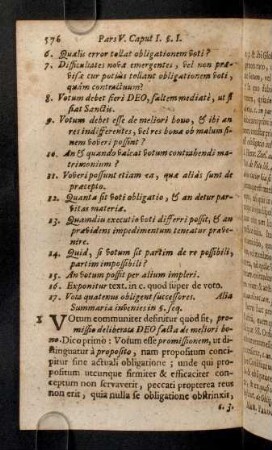 576 Pars V. Caput I. §. I.
6. Qualis error tollat obligationem voti?
7. Difficultates novæ emergentes, vel non præ-
visæ cur potiùs tollant obligationem voti,
quàm contractuum?
8. Votum debet fieri DEO, saltem mediatè, ut si
fiat Sanctis.
9. Votum debet esse de meliori bono, & ibi an
res indifferentes, vel res bona ob malum fi-
nem voveri possunt?
10. An & quando valeat votum contrahendi ma-
trimonium?
11. Voveri possunt etiam ea, quæ aliàs sunt de
præcepto.
12. Quanta sit voti obligatio, & an detur par-
vitas materiæ.
13. Quamdiu executio voti differri possit, & an
prævidens impedimentum teneatur præve-
nire.
14. Quid, si votum sit partim de re possibili,
partim impossibili?
15. An votum possit per alium impleri.
16. Exponitur text. in c. quod super de voto.
17. Vota quatenus obligent successores. Alia
Summaria invenies in §. seq.
1 VOtum communiter definitur quod sit, pro-
missio deliberata DEO facta de meliori bo-
no. Dico primò: Votum esse promissionem, ut di-
stinguatur à proposito, nam propositum conci-
pitur sine actuali obligatione; unde qui pro-
positum utcunque firmiter & efficaciter con-
ceptum non servaverit, peccati propterea reus
non erit, quia nulla se obligatione obstrinxit,